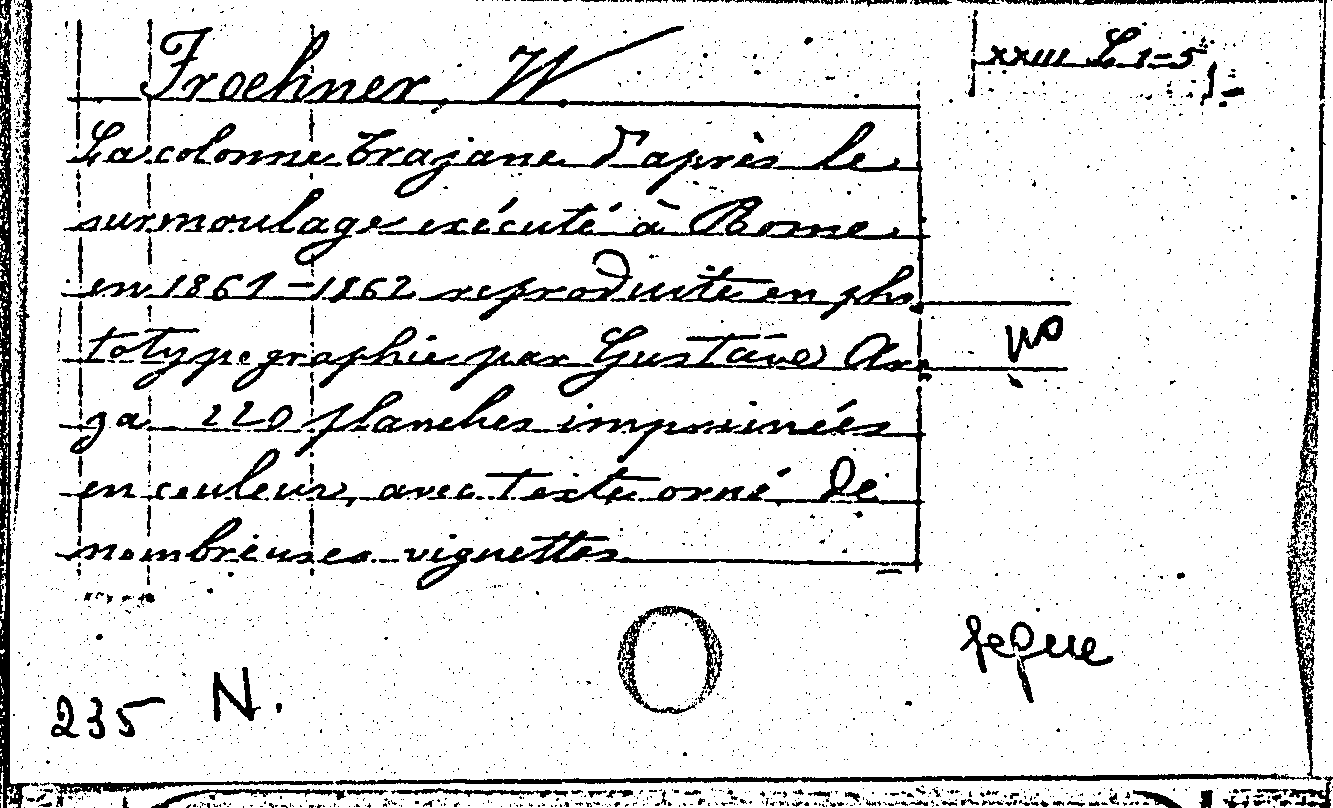 Froehner, W.
XXIII L 1-5
La colonne Trajane d'après le
surmoulage exécuté à Rome
en 1861-1862 reproduite en pho
totypographie par Gustave Ar
za 220 planches imprimées
en couleur, avec texte orné de
nombreuses vignettes
segue
235 N.